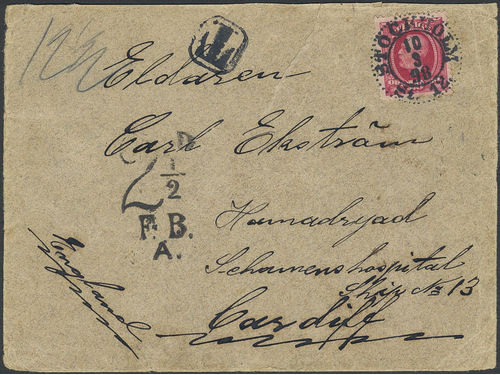 12½
T
STOCKHOLM
10
3
98
Eldaren
Carl Ekström
2½D
F.B.
A.
Hamadryad
Schamens hospital
Ship No 13
England
Cardiff